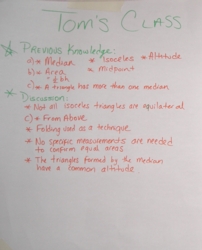 Tom's Class
* Previous Knowledge:
a) * Median * Isoceles * Altitude
b) * Area, * midpoint
½bh
c) * A triangle has more than one median
* Discussion:
* Not all isoceles triangles are equilateral
c) * From Above
* Folding used as a technique
* No specific measurements are needed
to confirm equal areas
* The triangles formed by the median
have a common altitude